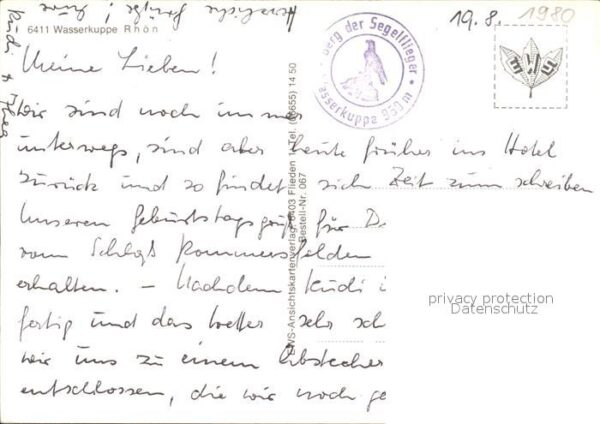 19.8. 1980
6411 Wasserkuppe Rhön
Herzliche Grüße! Eure
Rudi +
Meine Lieben!
Wir sind noch immer
unterwegs, sind aber heute früher ins Hotel
zurück und so findet sich Zeit zum schreiben
Unseren Geburtstagsgruß für D
vom Schloß Pommersfelden
erhalten. – Nachdem Rudi i
fertig und das Wetter sehr sch
wir uns zu einem Abstecher
entschlossen, die wir noch ge
berg der Segelflieger
Wasserkuppe 950 m
MWS-Ansichtskartenverlag 6403 Flieden 1 Tel. (06655) 14 50
Bestell-Nr. 067
privacy protection
Datenschutz